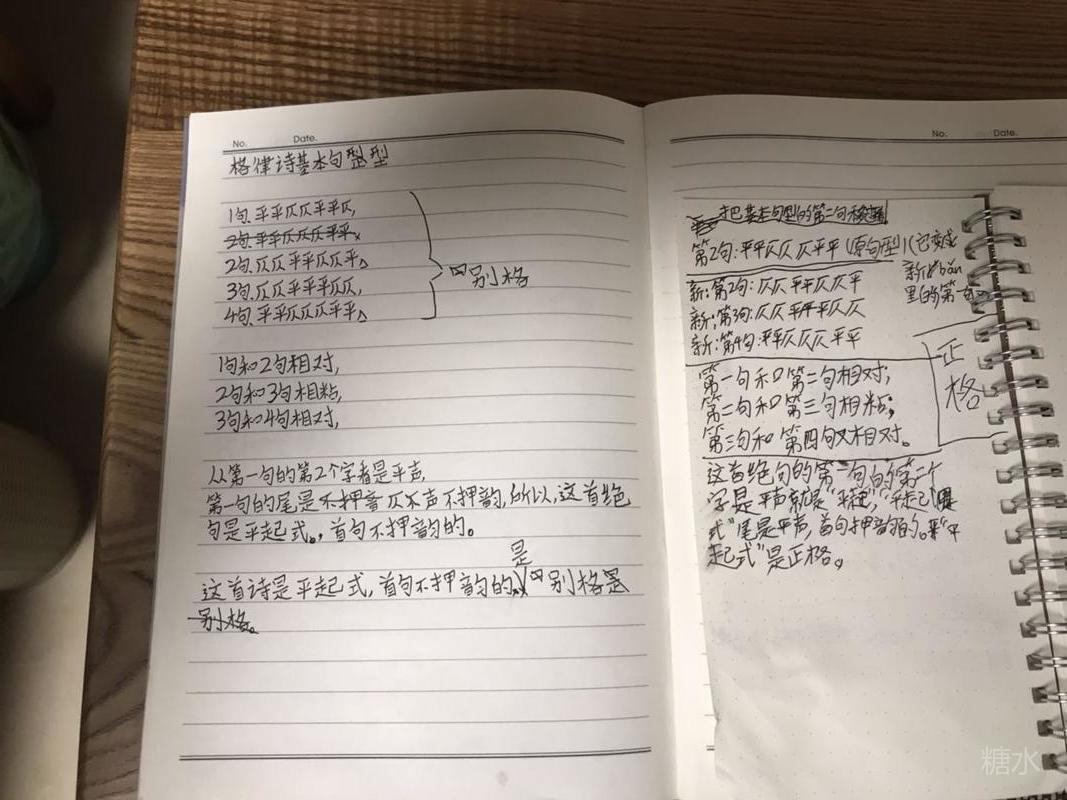 No. Date.
格律诗基本句型型
1句.平平仄仄平平仄,
2句.平平仄仄仄平平,
2句.仄仄平平仄仄平。
3句.仄仄平平平仄仄,
4句.平平仄仄仄平平。
别格
1句和2句相对,
2句和3句相粘,
3句和4句相对,
从第一句的第2个字者是平声,
第一句的尾是不押音仄不声不押韵,所以,这首绝
句是平起式。,首句不押韵的。
是
这首诗是平起式,首句不押韵的 别格是
别格。
No. Date.
把基本句型的第二句
第2句:平平仄仄仄平平(原句型)(已变成
新的bǎn
里的第一
新:第2句:仄仄平平仄仄平
新:第3句:仄仄平平平仄仄
新:第4句:平平仄仄仄平平
正格
第一句和第二句相对,
第二句和第三句相粘,
第三句和第四句又相对。
这首绝句的第一句的第二个
字是平声就是“平起”,“平起
式”尾是平声,首句押韵的。“平
起式”是正格。
糖水